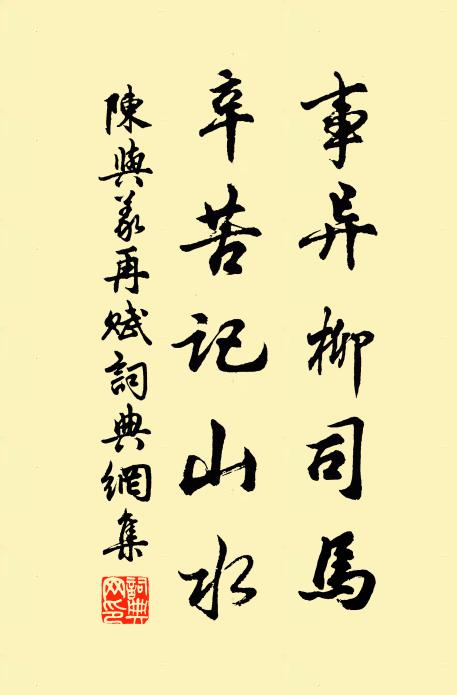 事异柳司馬
辛苦記山水
陳與義再賦詞典網集
詞典